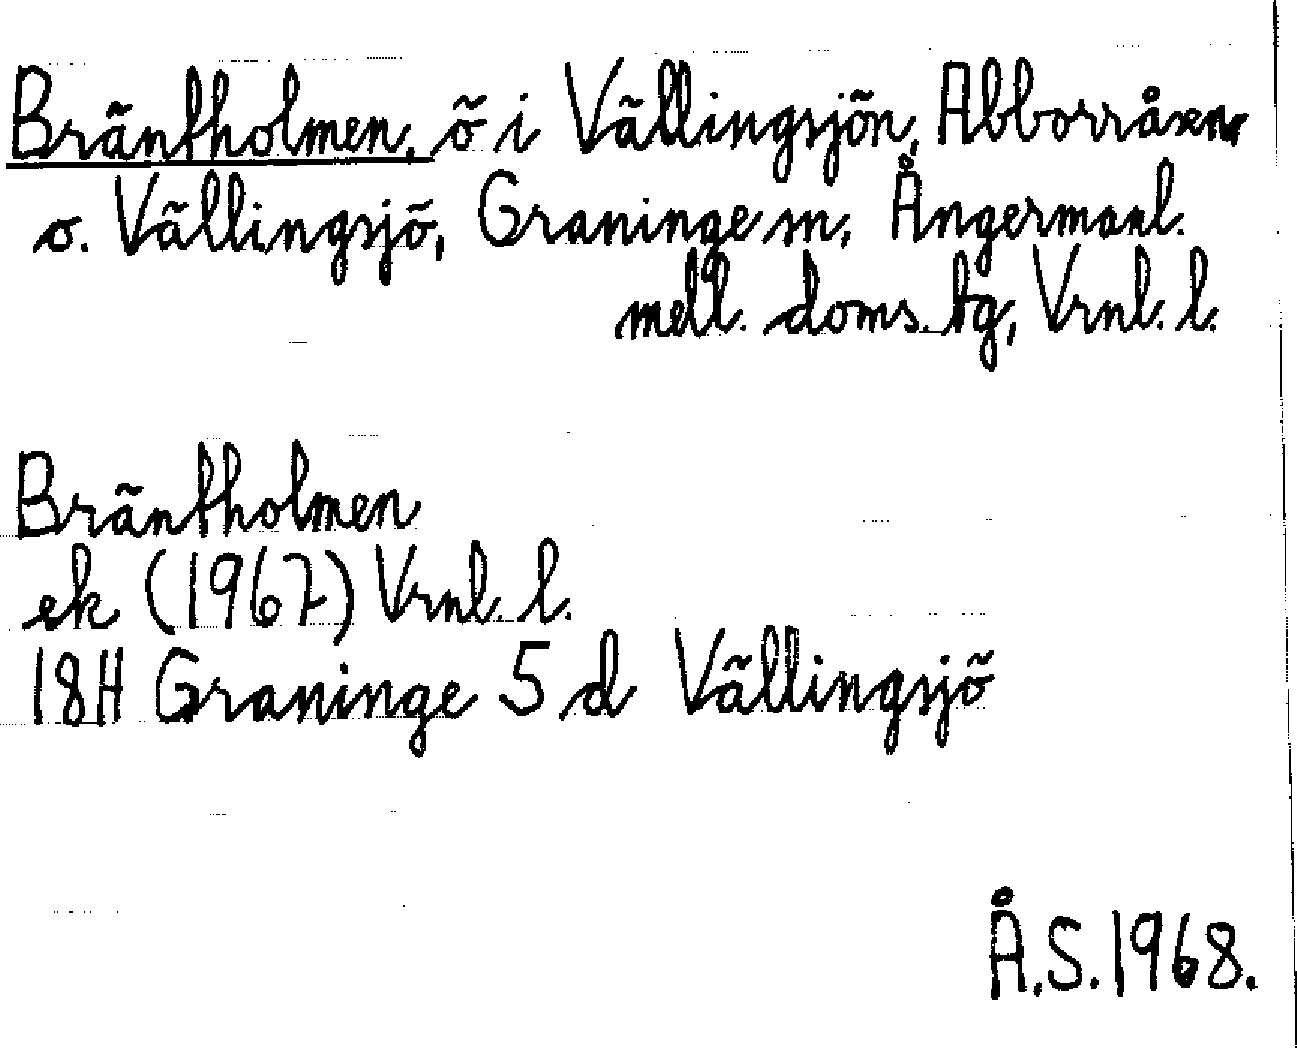 Bräntholmen, ö i Vällingsjön, Abborråsen
o. Vällingsjö, Graninge sn, Ångermanl.
mell. doms. tg, Vrnl. l.
Bräntholmen
ek (1967) Vrnl. l.
18H Graninge 5 d Vällingsjö
Å.S. 1968.